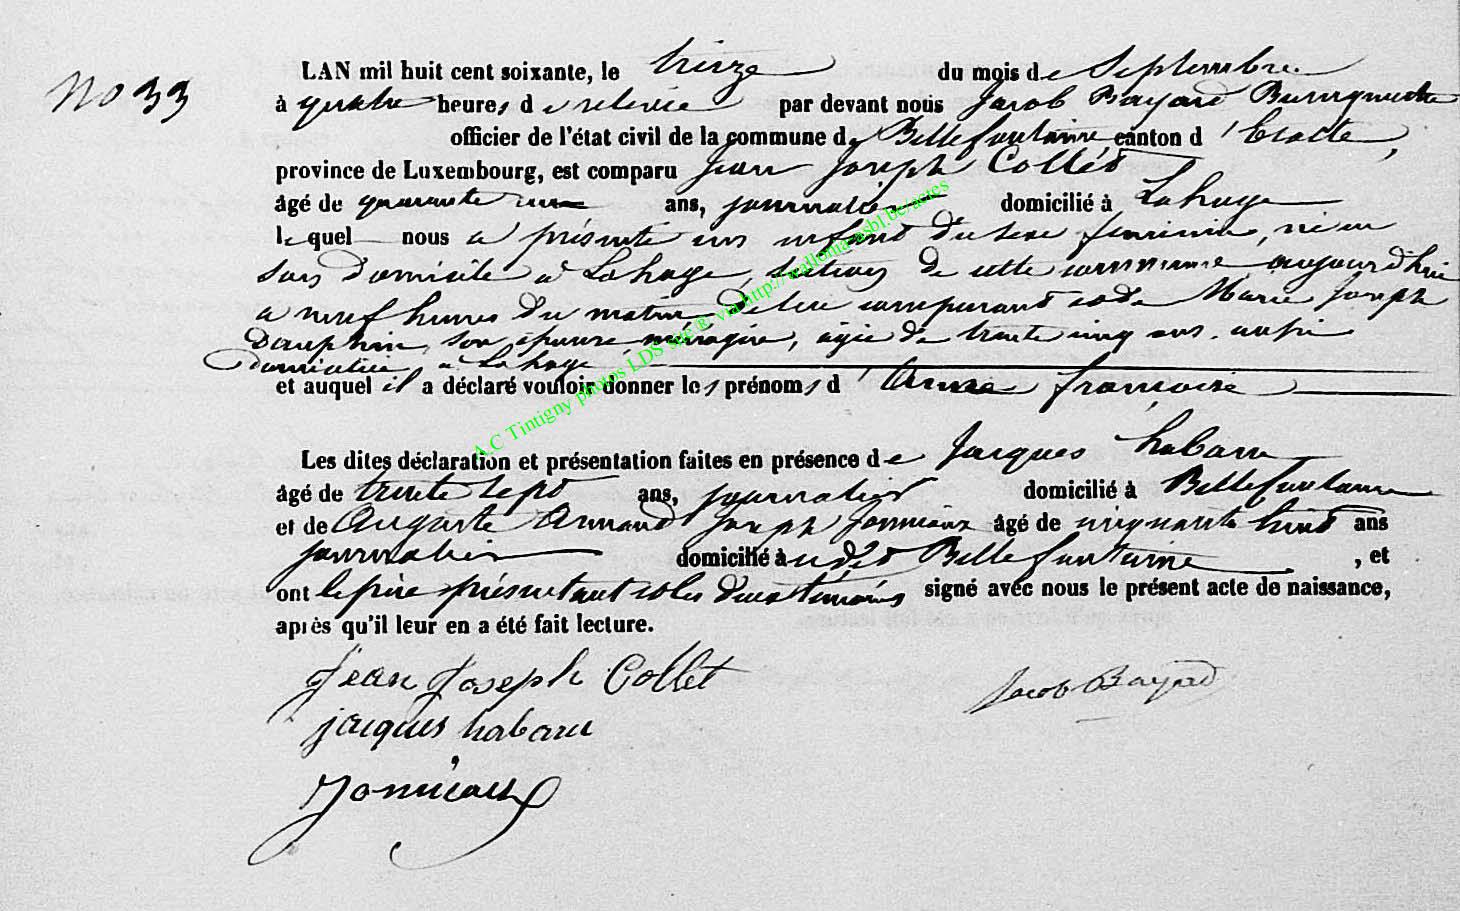 No 33
LAN mil huit cent soixante, le treize du mois de Septembre
à quatre heures de relevée par devant nous Jacob Bayard Bourgmestre
officier de l'état civil de la commune de Bellefontaine canton d'Etalle,
province de Luxembourg, est comparu Jean Joseph Collet
âgé de quarante un ans, journalier domicilié à Lahage
lequel nous a présenté un enfant du sexe féminin, né en
son domicile à Lahage, section de cette commune, aujourd'hui
à neuf heures du matin de lui comparant et de Marie Joseph
Dauphin, son épouse ménagère, agée de trente cinq ans, aussi
domiciliée à Lahage
et auquel il a déclaré vouloir donner les prénoms d'Anne françoise
Les dites déclaration et présentation faites en présence de Jacques habaru
âgé de trente sept ans, journalier domicilié à Bellefontaine
et de Auguste Armand Joseph Jomieaux âgé de cinquante huit ans
journalier domicilié à udit Bellefontaine , et
ont le père présentant et les deux témoins signé avec nous le présent acte de naissance,
après qu'il leur en a été fait lecture.
Jean Joseph Collet
Jacob Bayard
jacques habaru
A.C Tintigny photos LDS site ® via http://wallonia-asbl.be/actes